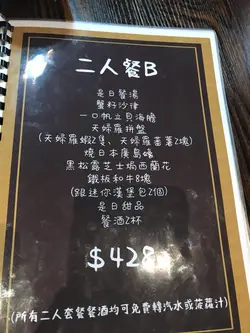 二人餐B
是日餐湯
蟹籽沙律
一口帆立貝海膽
天婦羅拼盤
(天婦羅蝦2隻、天婦羅蕃薯2塊)
燒日本廣島蠔
黑松露芝士焗西蘭花
鐵板和牛8塊
(跟迷你漢堡包2個)
是日甜品
餐酒2杯
$428
(所有二人套餐餐酒均可免費轉汽水或菠蘿汁)